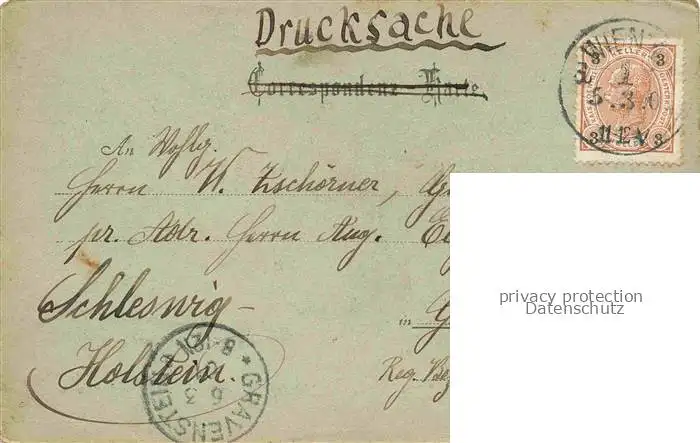 Drucksache
Correspondenz-Karte.
WIEN
3 3
11-12.V
3 3
An Wohlg.
Herrn W. Zschörner,
pr. Adr. Herrn Aug.
Schleswig-
in G
Holstein.
Reg. Bez
GRAVENSTEIN
6 3
8-
privacy protection
Datenschutz